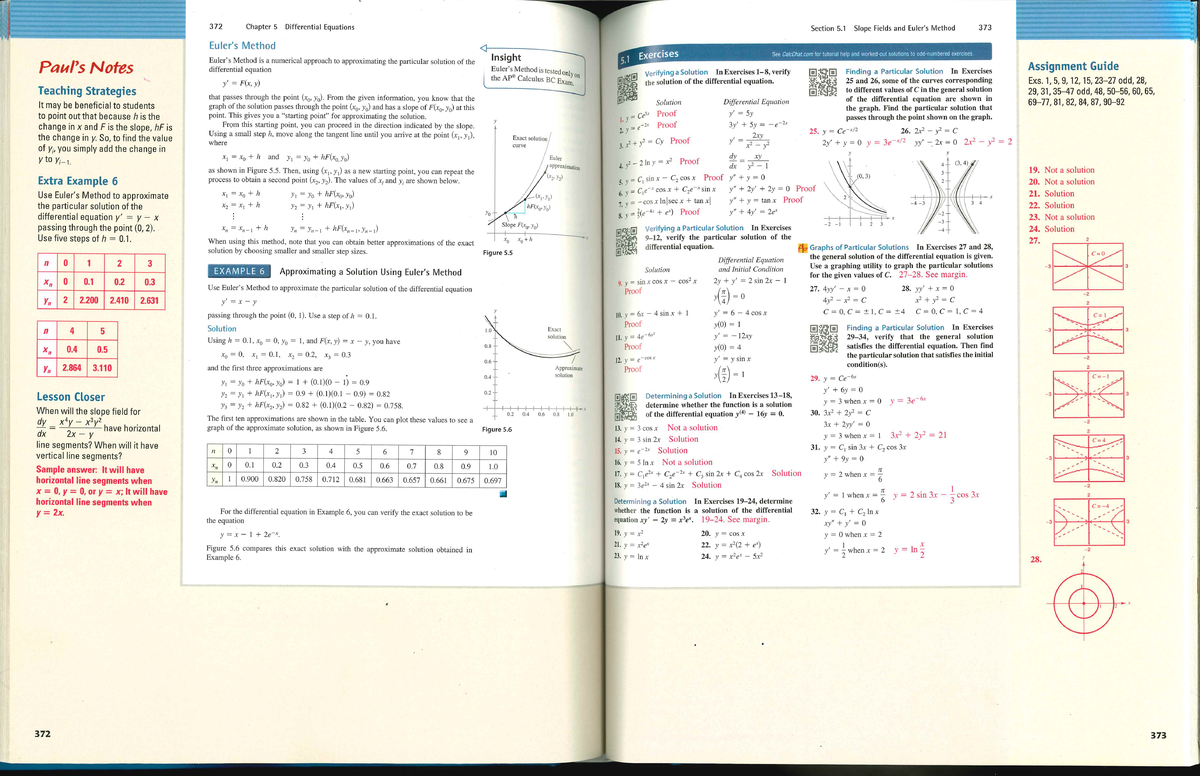 Paul's Notes
Teaching Strategies
It may be beneficial to students
to point out that because h is the
change in x and F is the slope, hF is
the change in y. So, to find the value
of yᵢ, you simply add the change in
y to yᵢ₋₁.
Extra Example 6
Use Euler's Method to approximate
the particular solution of the
differential equation y′ = y − x
passing through the point (0, 2).
Use five steps of h = 0.1.
n 0 1 2 3
xₙ 0 0.1 0.2 0.3
yₙ 2 2.200 2.410 2.631
n 4 5
xₙ 0.4 0.5
yₙ 2.864 3.110
Lesson Closer
When will the slope field for
dy/dx = (x⁴y − x³y²)/(2x − y) have horizontal
line segments? When will it have
vertical line segments?
Sample answer: It will have
horizontal line segments when
x = 0, y = 0, or y = x; It will have
horizontal line segments when
y = 2x.
372
372 Chapter 5 Differential Equations
Euler's Method
Euler's Method is a numerical approach to approximating the particular solution of the
differential equation
y′ = F(x, y)
that passes through the point (x₀, y₀). From the given information, you know that the
graph of the solution passes through the point (x₀, y₀) and has a slope of F(x₀, y₀) at this
point. This gives you a "starting point" for approximating the solution.
From this starting point, you can proceed in the direction indicated by the slope.
Using a small step h, move along the tangent line until you arrive at the point (x₁, y₁),
where
x₁ = x₀ + h and y₁ = y₀ + hF(x₀, y₀)
as shown in Figure 5.5. Then, using (x₁, y₁) as a new starting point, you can repeat the
process to obtain a second point (x₂, y₂). The values of xᵢ and yᵢ are shown below.
x₁ = x₀ + h y₁ = y₀ + hF(x₀, y₀)
x₂ = x₁ + h y₂ = y₁ + hF(x₁, y₁)
⋮ ⋮
xₙ = xₙ₋₁ + h yₙ = yₙ₋₁ + hF(xₙ₋₁, yₙ₋₁)
When using this method, note that you can obtain better approximations of the exact
solution by choosing smaller and smaller step sizes.
EXAMPLE 6 Approximating a Solution Using Euler's Method
Use Euler's Method to approximate the particular solution of the differential equation
y′ = x − y
passing through the point (0, 1). Use a step of h = 0.1.
Solution
Using h = 0.1, x₀ = 0, y₀ = 1, and F(x, y) = x − y, you have
x₀ = 0, x₁ = 0.1, x₂ = 0.2, x₃ = 0.3
and the first three approximations are
y₁ = y₀ + hF(x₀, y₀) = 1 + (0.1)(0 − 1) = 0.9
y₂ = y₁ + hF(x₁, y₁) = 0.9 + (0.1)(0.1 − 0.9) = 0.82
y₃ = y₂ + hF(x₂, y₂) = 0.82 + (0.1)(0.2 − 0.82) = 0.758.
The first ten approximations are shown in the table. You can plot these values to see a
graph of the approximate solution, as shown in Figure 5.6.
n 0 1 2 3 4 5 6 7 8 9 10
xₙ 0 0.1 0.2 0.3 0.4 0.5 0.6 0.7 0.8 0.9 1.0
yₙ 1 0.900 0.820 0.758 0.712 0.681 0.663 0.657 0.661 0.675 0.697
For the differential equation in Example 6, you can verify the exact solution to be
the equation
y = x − 1 + 2e⁻ˣ.
Figure 5.6 compares this exact solution with the approximate solution obtained in
Example 6.
Insight
Euler's Method is tested only on
the AP® Calculus BC Exam.
y
Exact solution
curve
Euler
approximation
(x₂, y₂)
(x₁, y₁)
hF(x₀, y₀)
y₀
h
Slope F(x₀, y₀)
x₀ x₀ + h
x
Figure 5.5
y
1.0
Exact
solution
0.8
0.6
Approximate
solution
0.4
0.2
0.2 0.4 0.6 0.8 1.0 x
Figure 5.6
Section 5.1 Slope Fields and Euler's Method 373
5.1 Exercises
See CalcChat.com for tutorial help and worked-out solutions to odd-numbered exercises.
Verifying a Solution In Exercises 1–8, verify
the solution of the differential equation.
Solution Differential Equation
1. y = Ce⁵ˣ Proof y′ = 5y
2. y = e⁻²ˣ Proof 3y′ + 5y = −e⁻²ˣ
3. x² + y² = Cy Proof y′ = 2xy/(x² − y²)
4. y² − 2 ln y = x² Proof dy/dx = xy/(y² − 1)
5. y = C₁ sin x − C₂ cos x Proof y″ + y = 0
6. y = C₁e⁻ˣ cos x + C₂e⁻ˣ sin x y″ + 2y′ + 2y = 0 Proof
7. y = −cos x ln|sec x + tan x| y″ + y = tan x Proof
8. y = ⅖(e⁻⁴ˣ + eˣ) Proof y″ + 4y′ = 2eˣ
Verifying a Particular Solution In Exercises
9–12, verify the particular solution of the
differential equation.
Differential Equation
Solution and Initial Condition
9. y = sin x cos x − cos² x 2y + y′ = 2 sin 2x − 1
Proof y(π/4) = 0
10. y = 6x − 4 sin x + 1 y′ = 6 − 4 cos x
Proof y(0) = 1
11. y = 4e^(−6x²) y′ = −12xy
Proof y(0) = 4
12. y = e^(−cos x) y′ = y sin x
Proof y(π/2) = 1
Determining a Solution In Exercises 13–18,
determine whether the function is a solution
of the differential equation y⁽⁴⁾ − 16y = 0.
13. y = 3 cos x Not a solution
14. y = 3 sin 2x Solution
15. y = e⁻²ˣ Solution
16. y = 5 ln x Not a solution
17. y = C₁e²ˣ + C₂e⁻²ˣ + C₃ sin 2x + C₄ cos 2x Solution
18. y = 3e²ˣ − 4 sin 2x Solution
Determining a Solution In Exercises 19–24, determine
whether the function is a solution of the differential
equation xy′ − 2y = x³eˣ. 19–24. See margin.
19. y = x² 20. y = cos x
21. y = x²eˣ 22. y = x²(2 + eˣ)
23. y = ln x 24. y = x²eˣ − 5x²
Finding a Particular Solution In Exercises
25 and 26, some of the curves corresponding
to different values of C in the general solution
of the differential equation are shown in
the graph. Find the particular solution that
passes through the point shown on the graph.
25. y = Ce^(−x/2) 26. 2x² − y² = C
2y′ + y = 0 y = 3e^(−x/2) yy′ − 2x = 0 2x² − y² = 2
y
(0, 3)
2
−2 −1 1 2 3 x
y
(3, 4)
4
3
2
−4 −3 3 4 x
−2
−3
−4
Graphs of Particular Solutions In Exercises 27 and 28,
the general solution of the differential equation is given.
Use a graphing utility to graph the particular solutions
for the given values of C. 27–28. See margin.
27. 4yy′ − x = 0 28. yy′ + x = 0
4y² − x² = C x² + y² = C
C = 0, C = ±1, C = ±4 C = 0, C = 1, C = 4
Finding a Particular Solution In Exercises
29–34, verify that the general solution
satisfies the differential equation. Then find
the particular solution that satisfies the initial
condition(s).
29. y = Ce⁻⁶ˣ
y′ + 6y = 0
y = 3 when x = 0 y = 3e⁻⁶ˣ
30. 3x² + 2y² = C
3x + 2yy′ = 0
y = 3 when x = 1 3x² + 2y² = 21
31. y = C₁ sin 3x + C₂ cos 3x
y″ + 9y = 0
y = 2 when x = π/6
y′ = 1 when x = π/6 y = 2 sin 3x − 1/3 cos 3x
32. y = C₁ + C₂ ln x
xy″ + y′ = 0
y = 0 when x = 2
y′ = 1/2 when x = 2 y = ln x/2
Assignment Guide
Exs. 1, 5, 9, 12, 15, 23–27 odd, 28,
29, 31, 35–47 odd, 48, 50–56, 60, 65,
69–77, 81, 82, 84, 87, 90–92
19. Not a solution
20. Not a solution
21. Solution
22. Solution
23. Not a solution
24. Solution
27.
2
C = 0
−3 3
−2
2
C = 1
−3 3
−2
2
C = −1
−3 3
−2
2
C = 4
−3 3
−2
2
C = −4
−3 3
−2
28.
y
2
1
1 2 x
373